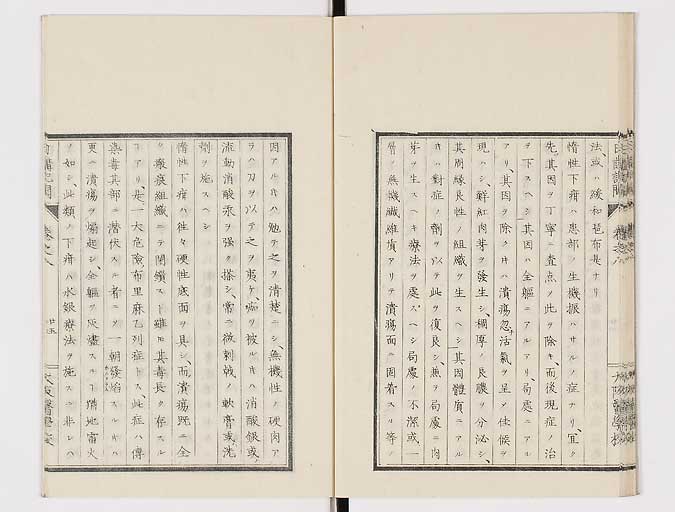 法、或ハ緩和琶布是ナリ
惰性下疳ハ患部ノ生機振ハサルノ症ナリ、宜ク
先其因ヲ丁寧ニ査点ヲ此ヲ除キ、而後現症ノ治
ヲ下スヘシ、其因ハ全軀ニアルアリ、局處ニアル
アリ、其因ヲ除クキハ潰瘍忽チ活氣ヲ呈ノ佳候ヲ
現ハシ、鮮紅肉芽ヲ發生シ、稠厚ノ良膿ヲ分泌シ、
其周縁良性ノ組織ヲ生スヘシ、其因體質ニアル
キハ對症ノ劑ヲ以テ此ヲ復良シ、兼テ局處ニ肉
芽ヲ生スヘキ療法ヲ處スヘシ局處ノ不潔或一
層ノ無機纖維質アリテ潰瘍面ニ固着スル等ノ
因アルキハ勉テ之ヲ清楚ニシ、無機性ノ硬肉ア
ラハ刀ヲ以テ之ヲ夷ケ、痂ヲ被ルキハ消酸銀或
流動消酸汞ヲ强ク搽シ、常ニ微刺戟ノ軟膏或洗
劑ヲ施スヘシ
惰性下疳ハ往々硬性底面ヲ具シ、而潰瘍既ニ全
ク瘢痕組織ニテ閉鎖スト雖モ其毒長ク存スル
ヿアリ、是一大危險、布里麻乙列症トス、此症ハ傳
染毒其部ニ潜伏スル者ニヲ一朝發焰スルキハ
更ニ潰瘍ヲ煽起シ、全軀ヲ灰盡スルヿ猶地雷火
ノ如シ、此類ノ下疳ハ水銀療法ヲ施スニ非レハ
日講記聞 卷之八 廿五 大阪醫學校